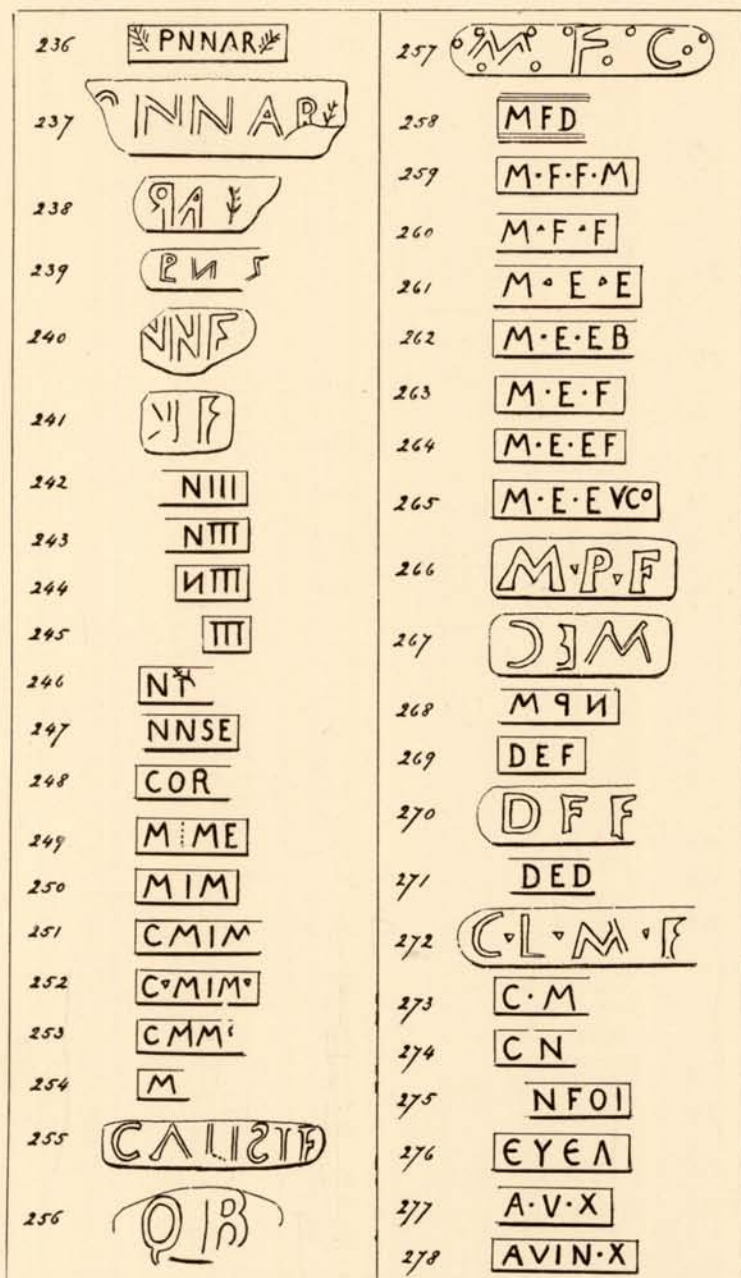 236 PNNAR
237 NNAR
238 ꟼA
239
240 NNF
241
242 NIII
243 NIII
244 ИIII
245 III
246 NT
247 NNSE
248 COR
249 M⋮ME
250 MIM
251 CMIM
252 C▿MIM▿
253 CMM
254 M
255 CALISTF
256 QR
257 M F C
258 MFD
259 M·F·F·M
260 M▵F▵F
261 M▵E▵E
262 M·E·EB
263 M·E·F
264 M·E·EF
265 M·E·EVCo
266 M▿P▿F
267 ƆƎM
268 MꟼИ
269 DEF
270 DFF
271 DED
272 C▿L▿M▿F
273 C·M
274 CN
275 NFOI
276 ЄYЄΛ
277 A·V·X
278 AVIN·X